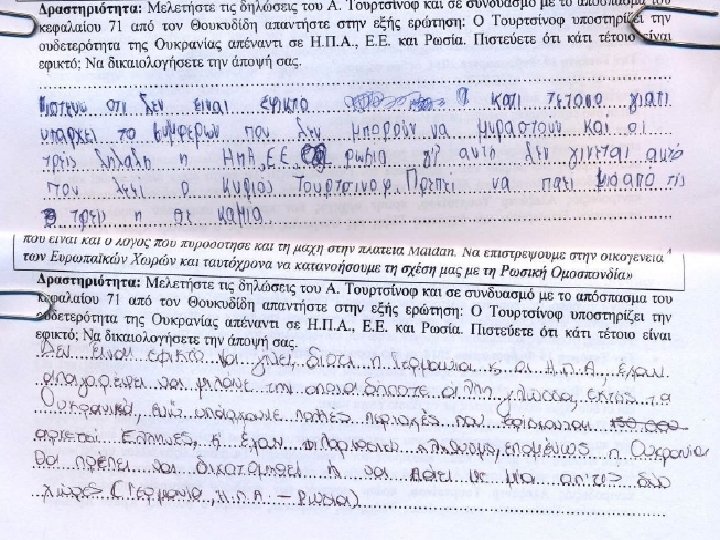 Δραστηριότητα: Μελετήστε τις δηλώσεις του Α. Τουρτσίνοφ και σε συνδυασμό με το απόσπασμα του
κεφαλαίου 71 από τον Θουκυδίδη απαντήστε στην εξής ερώτηση: Ο Τουρτσίνοφ υποστηρίζει την
ουδετερότητα της Ουκρανίας απέναντι σε Η.Π.Α., Ε.Ε. και Ρωσία. Πιστεύετε ότι κάτι τέτοιο είναι
εφικτό; Να δικαιολογήσετε την άποψή σας.
πιστευω οτι δεν ειναι εφικτο κατι τετοιο γιατι
υπαρχει το συμφερων που δεν μπορουν να μυραστουν και οι
τρεις δηλαδη η ΗΠΑ, ΕΕ, ρωσια γι αυτο δεν γινεται αυτό
που λεει ο κυριος Τουρτσινοφ. Πρεπει να παει με μια από τις
τρεις η σε καμια
που είναι και ο λόγος που πυροδότησε και τη μάχη στην πλατεία Maidan. Να επιστρέψουμε στην οικογένεια
των Ευρωπαϊκών Χωρών και ταυτόχρονα να κατανοήσουμε τη σχέση μας με τη Ρωσική Ομοσπονδία»
Δραστηριότητα: Μελετήστε τις δηλώσεις του Α. Τουρτσίνοφ και σε συνδυασμό με το απόσπασμα του
κεφαλαίου 71 από τον Θουκυδίδη απαντήστε στην εξής ερώτηση: Ο Τουρτσίνοφ υποστηρίζει την
ουδετερότητα της Ουκρανίας απέναντι σε Η.Π.Α., Ε.Ε. και Ρωσία. Πιστεύετε ότι κάτι τέτοιο είναι
εφικτό; Να δικαιολογήσετε την άποψή σας.
Δεν είναι εφικτό να γίνει, διότι η Γερμανία ή οι Η.Π.Α, έχουν
απαγορέψει να μιλάνε την οποιαδήποτε άλλη γλώσσα, εκτός τα
Ουκρανικά, ενώ υπάρχουνε πολλές περιοχές που βρίσκονται
αρκετοί Έλληνες, ή έχουν πληθυσμό, επομένως η Ουκρανία
θα πρέπει να διχοτομηθεί ή να πάει με μία απ'τις δύο
χώρες (Γερμανία, Η.Π.Α - Ρωσία)